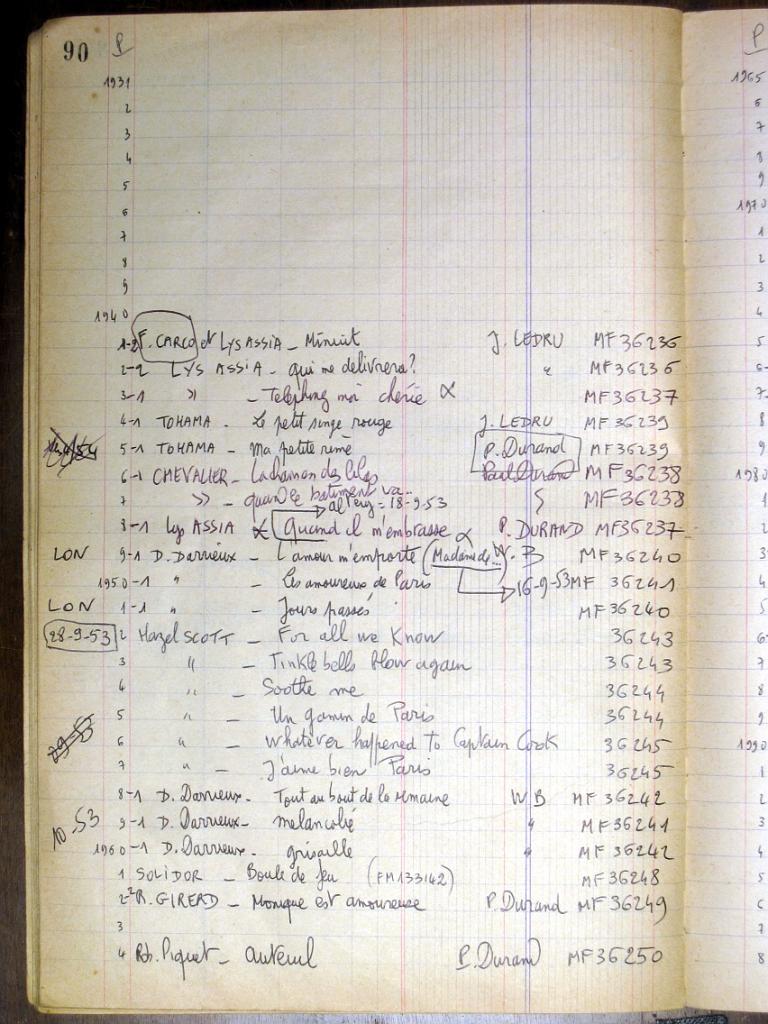 90 P
1931
2
3
4
5
6
7
8
9
1940
1-2 F. CARCO et LYS ASSIA _ Minuit J. LEDRU MF 36236
2-2 LYS ASSIA - qui me delivrera? " MF 36236
3-1 » - Telephone moi cherie α MF 36237
4-1 TOHAMA - Le petit singe rouge J. LEDRU MF 36239
5-1 TOHAMA - Ma petite P. Durand MF 36239
6-1 CHEVALIER - La chanson des lilas Paul Durand MF 36238
7 » - quand le batiment va... MF 36238
→ 18-9-53
8-1 Lys ASSIA α Quand il m'embrasse α P. DURAND MF 36237
LON 9-1 D. Darrieux - L'amour m'emporte (Madame de...) W. B MF 36240
1950-1 " - Les amoureux de Paris → 16-9-53 MF 36241
LON 1-1 " - Jours passés MF 36240
28-9-53 2 Hazel SCOTT - For all we Know 36243
3 " - Tinkle bells blow again 36243
4 " - Soothe me 36244
5 " - Un gamin de Paris 36244
6 " - Whatever happened to Captain Cook 36245
7 " - J'aime bien Paris 36245
8-1 D. Darrieux - Tout au bout de la semaine W B MF 36242
10-53 9-1 D. Darrieux - melancolie " MF 36241
1960-1 D. Darrieux - grisaille " MF 36242
1 SOLIDOR - Boule de feu (FM133142) MF 36248
2 R. GIRERD - Monique est amoureuse P. Durand MF 36249
3
4 Rob. Piquet - auteuil P. Durand MF 36250
P
1965
6
7
8
9
1970
1
2
3
4
5
6
7
8
9
1980
1
2
3
4
5
6
7
8
9
1990
1
2
3
4
5
6
7
8